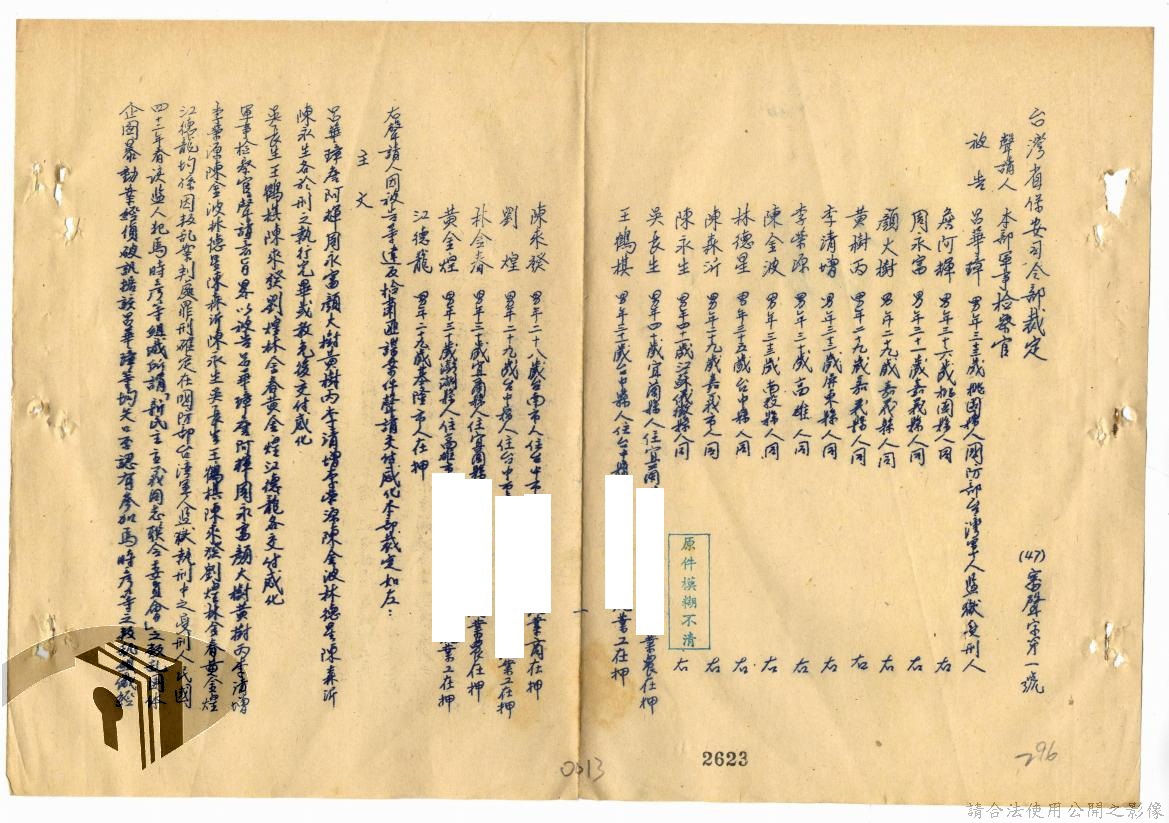 台灣省保安司令部裁定
(47)審聲字第一號
聲請人 本部軍事檢察官
被告 呂華璋 男年三三歲桃園縣人國防部台灣軍人監獄受刑人
詹阿輝 男年三六歲桃園縣人同右
周永富 男年三一歲嘉義縣人同右
顏大樹 男年二九歲嘉義縣人同右
黃樹丙 男年二九歲嘉義縣人同右
李清增 男年三二歲屏東縣人同右
李榮源 男年三歲高雄人同右
陳金波 男年三三歲南投縣人同右
林德星 男年三五歲台中縣人同右
陳森沂 男年二九歲嘉義市人同右
陳永生 男年四一歲江蘇儀徵縣人同右
吳長生 男年四十歲宜蘭縣人住宜蘭 業農在押
王鶴棋 男年三十歲台中縣人住台中縣 業工在押
陳來發 男年二十八歲台南市人住台中市 業商在押
劉煌 男年二十九歲台中縣人住台中 業工在押
林金春 男年三十歲宜蘭縣人住宜蘭縣 業農在押
黃金煌 男年三十歲澎湖縣人住高雄 業工在押
江德龍 男年二十九歲基隆市人在押
右聲請人因被告等違反檢肅匪諜案件聲請交付感化本部裁定如左:
主文
呂華璋詹阿輝周永富顏大樹黃樹丙李清增李榮源陳金波林德星陳森沂
陳永生各於刑之執行完畢或赦免後交付感化
吳長生王鶴棋陳來發劉煌林金春黃金煌江德龍各交付感化
軍事檢察官聲請意旨略以被告呂華璋詹阿輝周永富顏大樹黃樹丙李清增
李榮源陳金波林德星陳森沂陳永生吳長生王鶴棋陳來發劉煌林金春黃金煌
江德龍均係因叛亂案判處罪刑確定在國防部台灣軍人監獄執刑中之受刑人民國
四十二年春該監人犯馬時彥等組織所謂「新民主主義同志聯合委員會」之叛亂團體
企圖暴動案經偵破訊據該呂華璋等均矢口否認有參加馬時彥等之叛亂組織經
原件模糊不清
2623
0013
296
請合法使用公開之影像